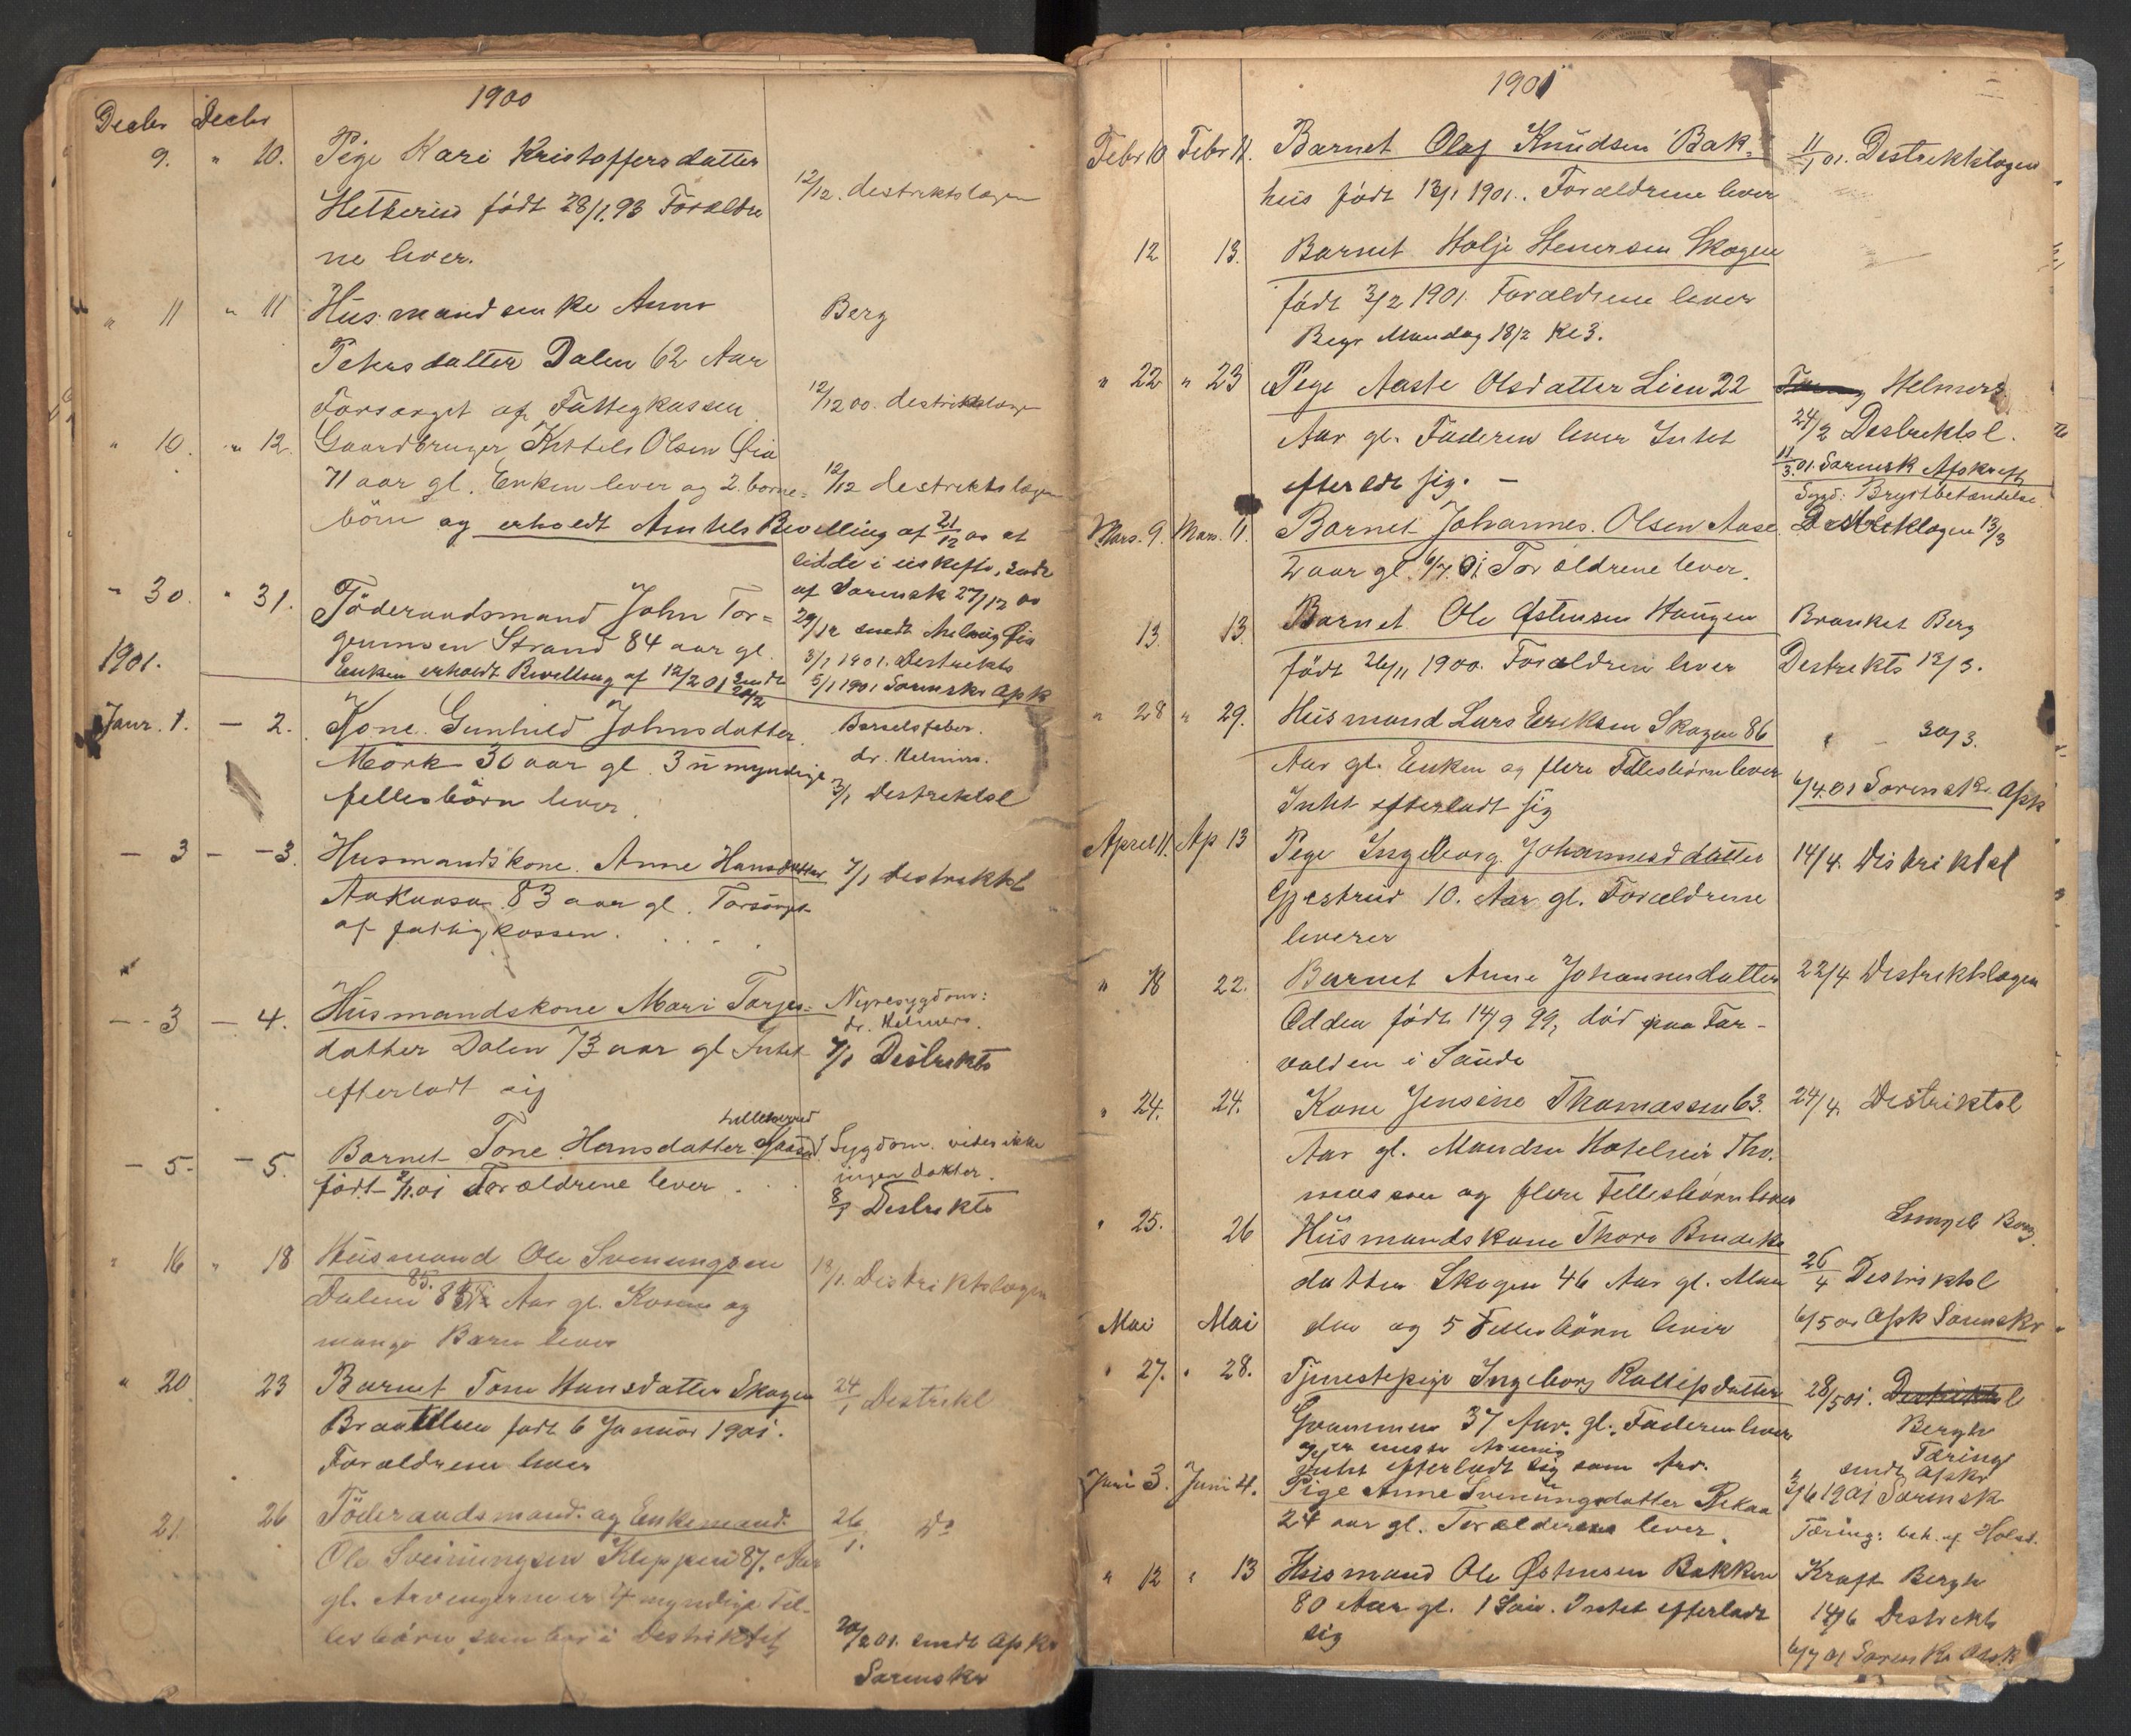 1900
Decbr Decbr
9. " 10. Pige Kari Kristoffersdatter
12/12. destriktslægen
født 28/1.93 Forældre
ne lever.
" 11 " 11 Husmandsenke Anne
Berg
Petersdatter Dalen 62 Aar
Forsørget af Fattegkassen
12/12 00. destriktslæge
" 10. " 12. Gaardbruger Kittel Olsen Øia
71 aar gl. Enken lever og 2. borne=
12/12 destriktslægen
börn og erholdt Amtets Bevilling af 21/12 00 at
sidde i uskefte, sendt
af Sorensk 27/12 00
- 30. " 31. Föderaadsmand John Tor=
29/12 sendt Øia
grimsen Strand 84 aar gl.
3/1 1901. Destrekts
1901.
Enken erholdt Bevilling af 12/2 01 sendt 20/2
5/1 1901 Sorenskr Apk
Janr. 1. — 2. Kone Gunhild Johnsdatter
Barselsfeber.
dr. Helmers.
Mörk 30 aar gl. 3 umyndige
3/1 Destrektsl
fellesbörn lever
— 3 — -3. Husmandskone. Anne Hansdatter
7/1 destrektsl
83 aar gl. Forsörget
af fattigkassen.
— 3 — 4. Husmandskone Mari Tarjes=
Nyresygdom:
dr. Helmers.
datter Dalen 73 aar gl Intet
7/1 Destrekts
efterladt sig
Lilleherred
— 5- — 5. Barnet Tone Hansdatter
Sygdom. vides ikke
ingen dokter.
født 01 Forældrene lever
8/1 Destrekts
" 16 " 18 Husmand Ole Svenungsen
18/1. Destriktslægen
85.
Dalen Aar gl. Konen og
mange Barn lever
" 20 23 Barnet Tone Hansdatter Skogen
24/1 Destrikl
født 6 Januar 1901.
Forældrene lever
21. 26 Föderaadsmand og Enkemand
26/1. Do
Ole Sveinungsen Kleppen 87. Aar
gl. Arvingerne er 4 myndige Fel-
lesbörn som bor i Destriktet
20/2 01. sendt Apk
Sorenskr
1901
Febr 10 Febr 11. Barnet Olaf Knudsen Bak-
01. Destrektslægen
hus født 13/1 1901. Forældrene lever
12 13. Barnet Holje Stenersen Skogen
født 3/2 1901. Forældrene lever
Begr Mandag 18/2 Kl 3.
" 22 " 23 Pige Aaste Olsdatter Lien 22
Helmers
Aar gl. Faderen lever Intet
24/2 Destrektsl.
11/3.01. Sorensk Afskreft
efterladt sig. -
Sygd: Brystbetændelse
Mars. 9. Mars. 11. Barnet Johannes Olsen Aase
Destrektslægen 13/3
2 aar gl. Forældrene lever.
13. 13. Barnet Ole Østensen Haugen
Bronket Berg
født 26/11 1900. Forældren lever
Destrekts 13/3.
" 28 " 29. Husmand Lars Eriksen Skogen 86
" - 30/3.
Aar gl. Enken og flere Fellesbörn lever
6/4.01 Sorenskr. Apk
Intet efterladt sig
April 11. Ap 13 Pige Ingeborg Johannesdatter
14/4. Distriktsl
Gjestrud 10. Aar gl. Forældrene
leverer
" 18 22. Barnet Anne Johannesdatter
22/4 Destriktslægen
Odden født 14/9 99, død paa Far-
volden i Saude
" 24. 24. Kone Jensine Thomassen 63.
24/4. Destriktsl
Aar gl. Manden Hoteleier Tho-
massen og flere Fellesbörn lever
" 25. 26 Husmandskone Thore
Lungeb Berg.
datter Skogen 46 Aar gl. Man
26/4 Destriktsl
Mai Mai den og 5 Fellesbörn lever
6/5 01 Apk Sorenskr
" 27. " 28. Tjenestepige Ingeborg
28/5 01. Destriktsl
37 Aar. gl. Faderen lever
Bergh
Tæring
Intet efterladt sig som Arv.
sendt Afskr
Juni 3. Juni 4. Pige Anne Svenungsdatter
3/6 1901 Sorensk
24 aar gl. Forældrene lever
Tæring: beh. af Holst.
" 12 " 13 Husmand Ole Østensen Bakken
Kræft Bergh
80 Aar gl. Intet efterladt
14/6 Destrekts
sig
6/7 01 Sorenskr Apsk